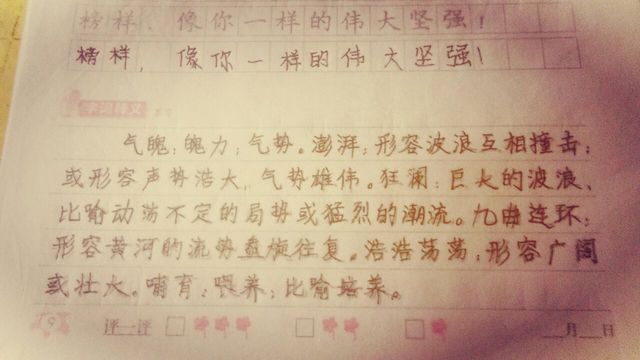 榜样，像你一样的伟大坚强！
榜样，像你一样的伟大坚强！
字词释义
气魄：魄力；气势。澎湃：形容波浪互相撞击；
或形容声势浩大，气势雄伟。狂澜：巨大的波浪、
比喻动荡不定的局势或猛烈的潮流。九曲连环：
形容黄河的流势盘旋往复。浩浩荡荡：形容广阔
或壮大。哺育：喂养；比喻培养。
9 评一评 月 日